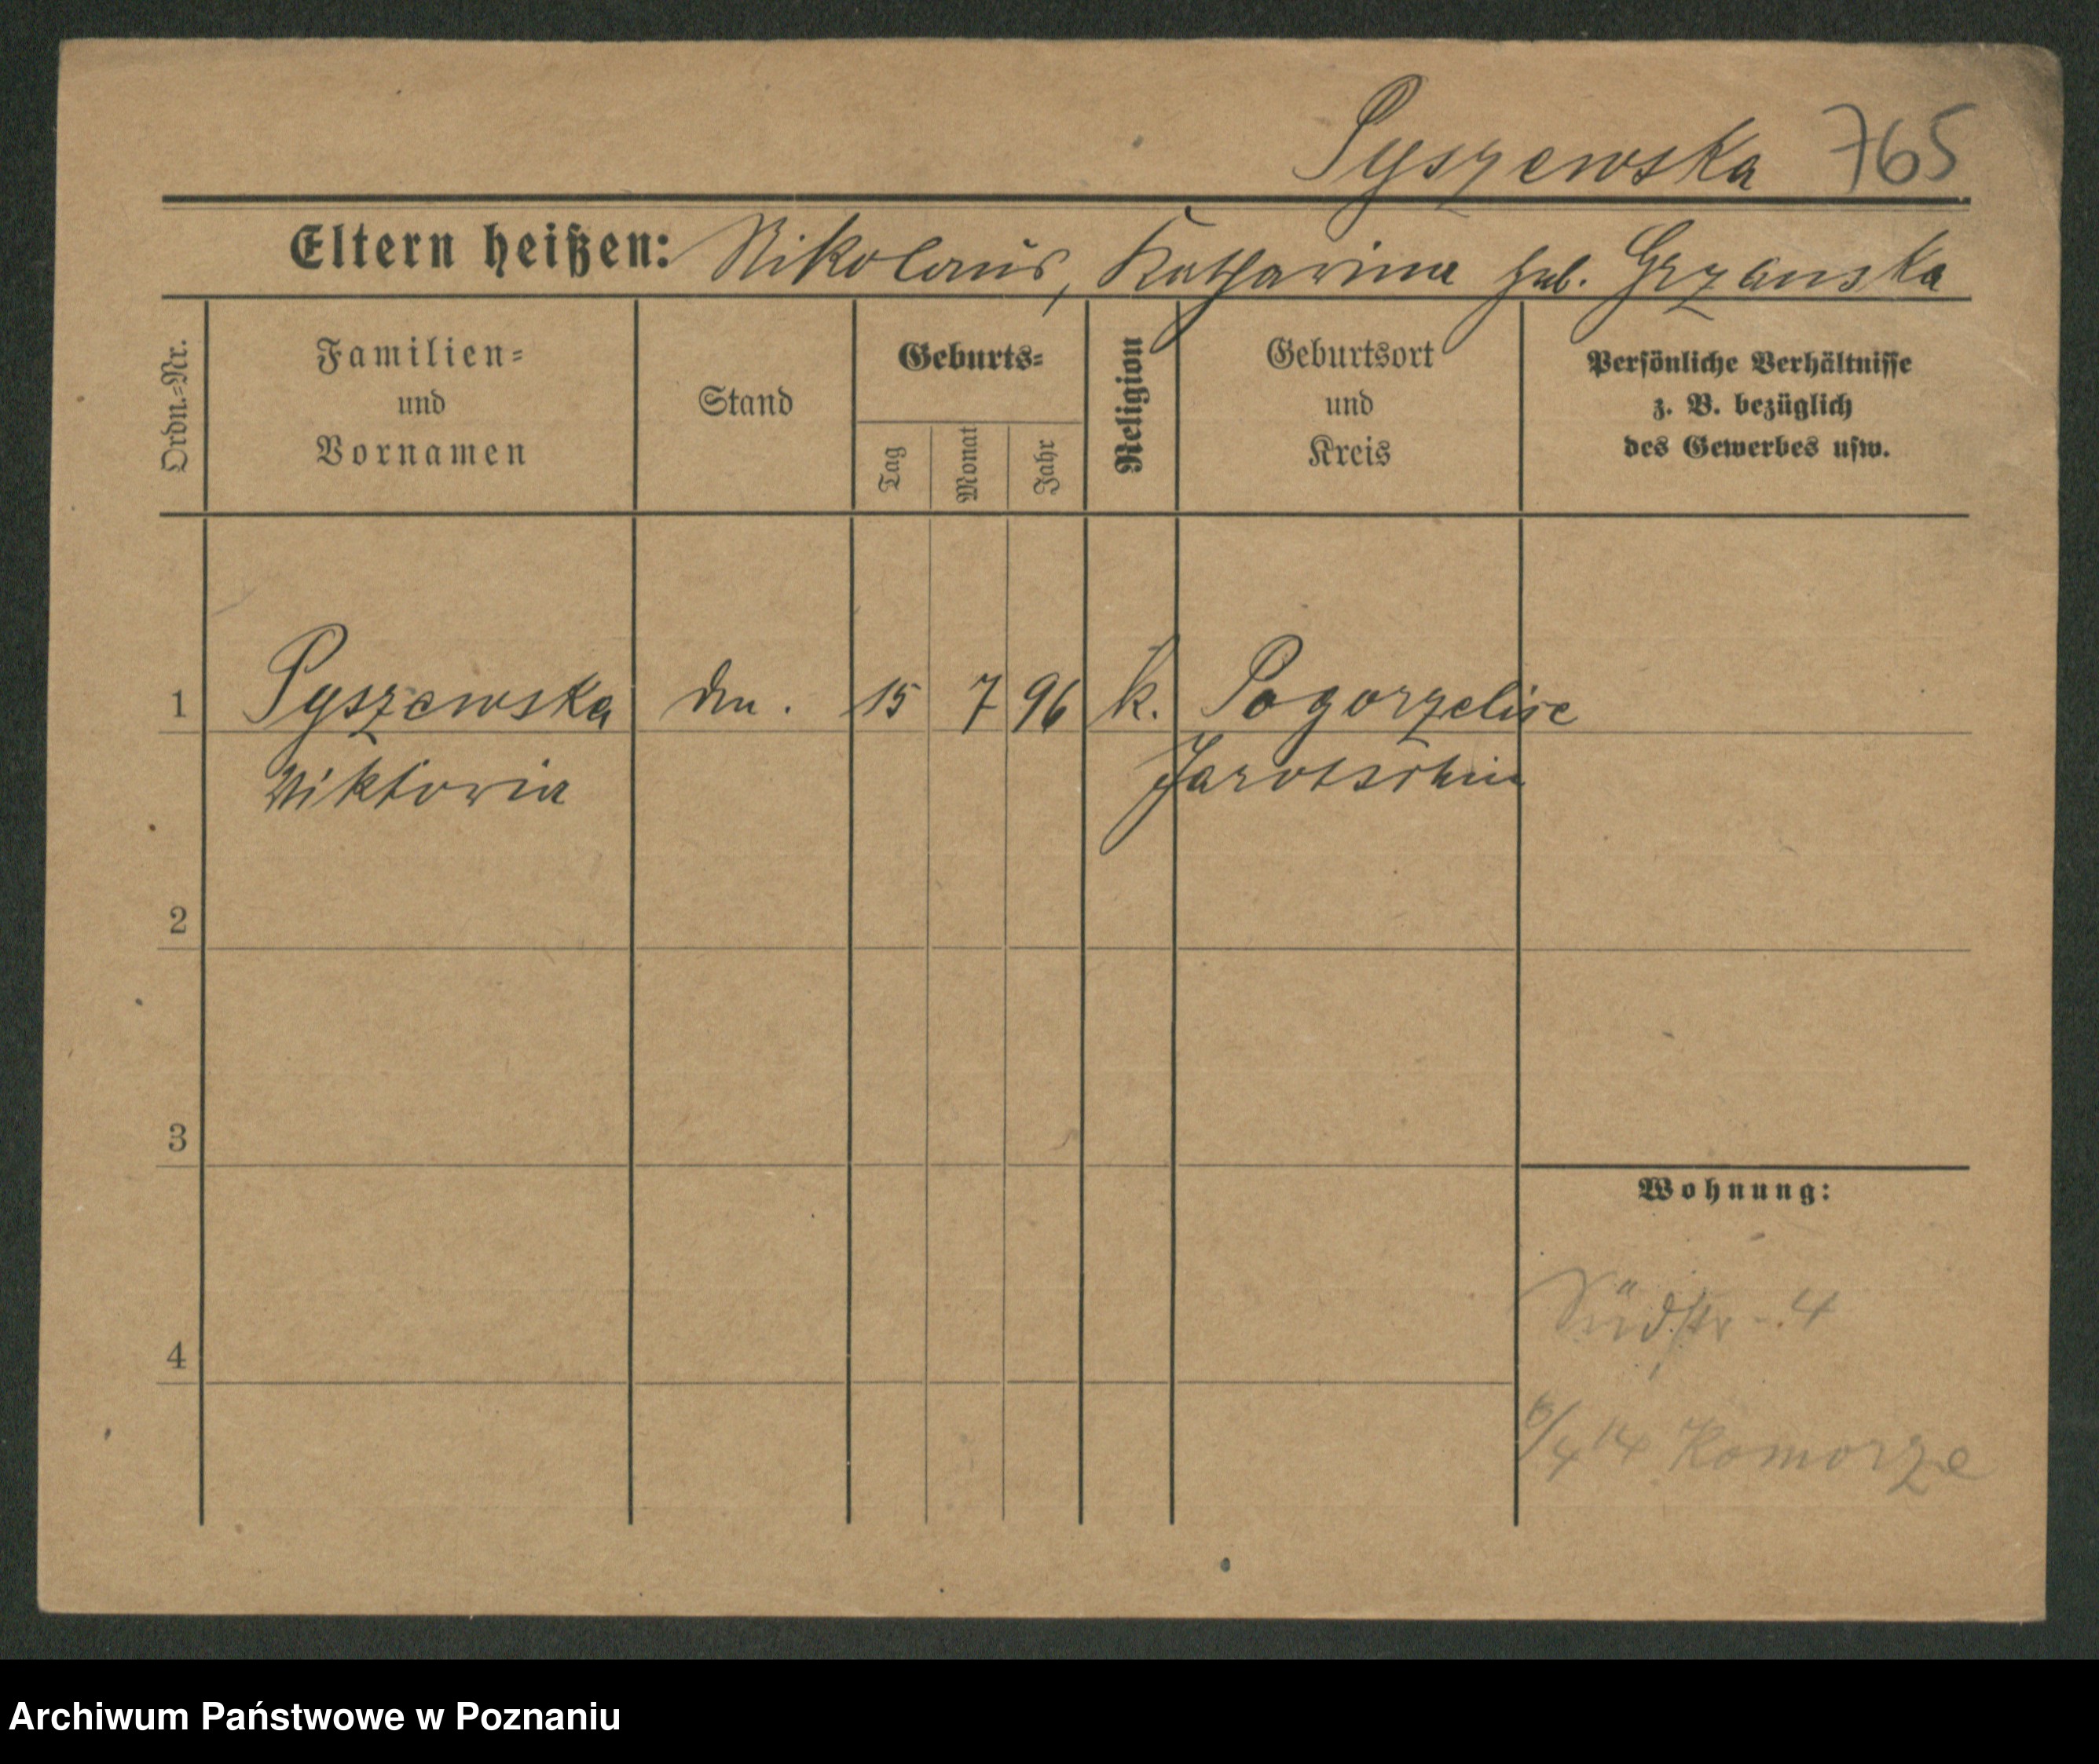 Pyszewska 765
Eltern heißen: Nikolaus, Katharina geb. Grzanska
Ordn.=Nr.
Familien=
und
Vornamen
Stand
Geburts=
Tag
Monat
Jahr
Religion
Geburtsort
und
Kreis
Persönliche Verhältnisse
z. B. bezüglich
des Gewerbes usw.
1 Pyszewska 15 7 96 k. Pogorzelice
Viktoria Jarotschin
2
3
Wohnung:
Südstr. 4
4
6/4 14 Komorze
Archiwum Państwowe w Poznaniu